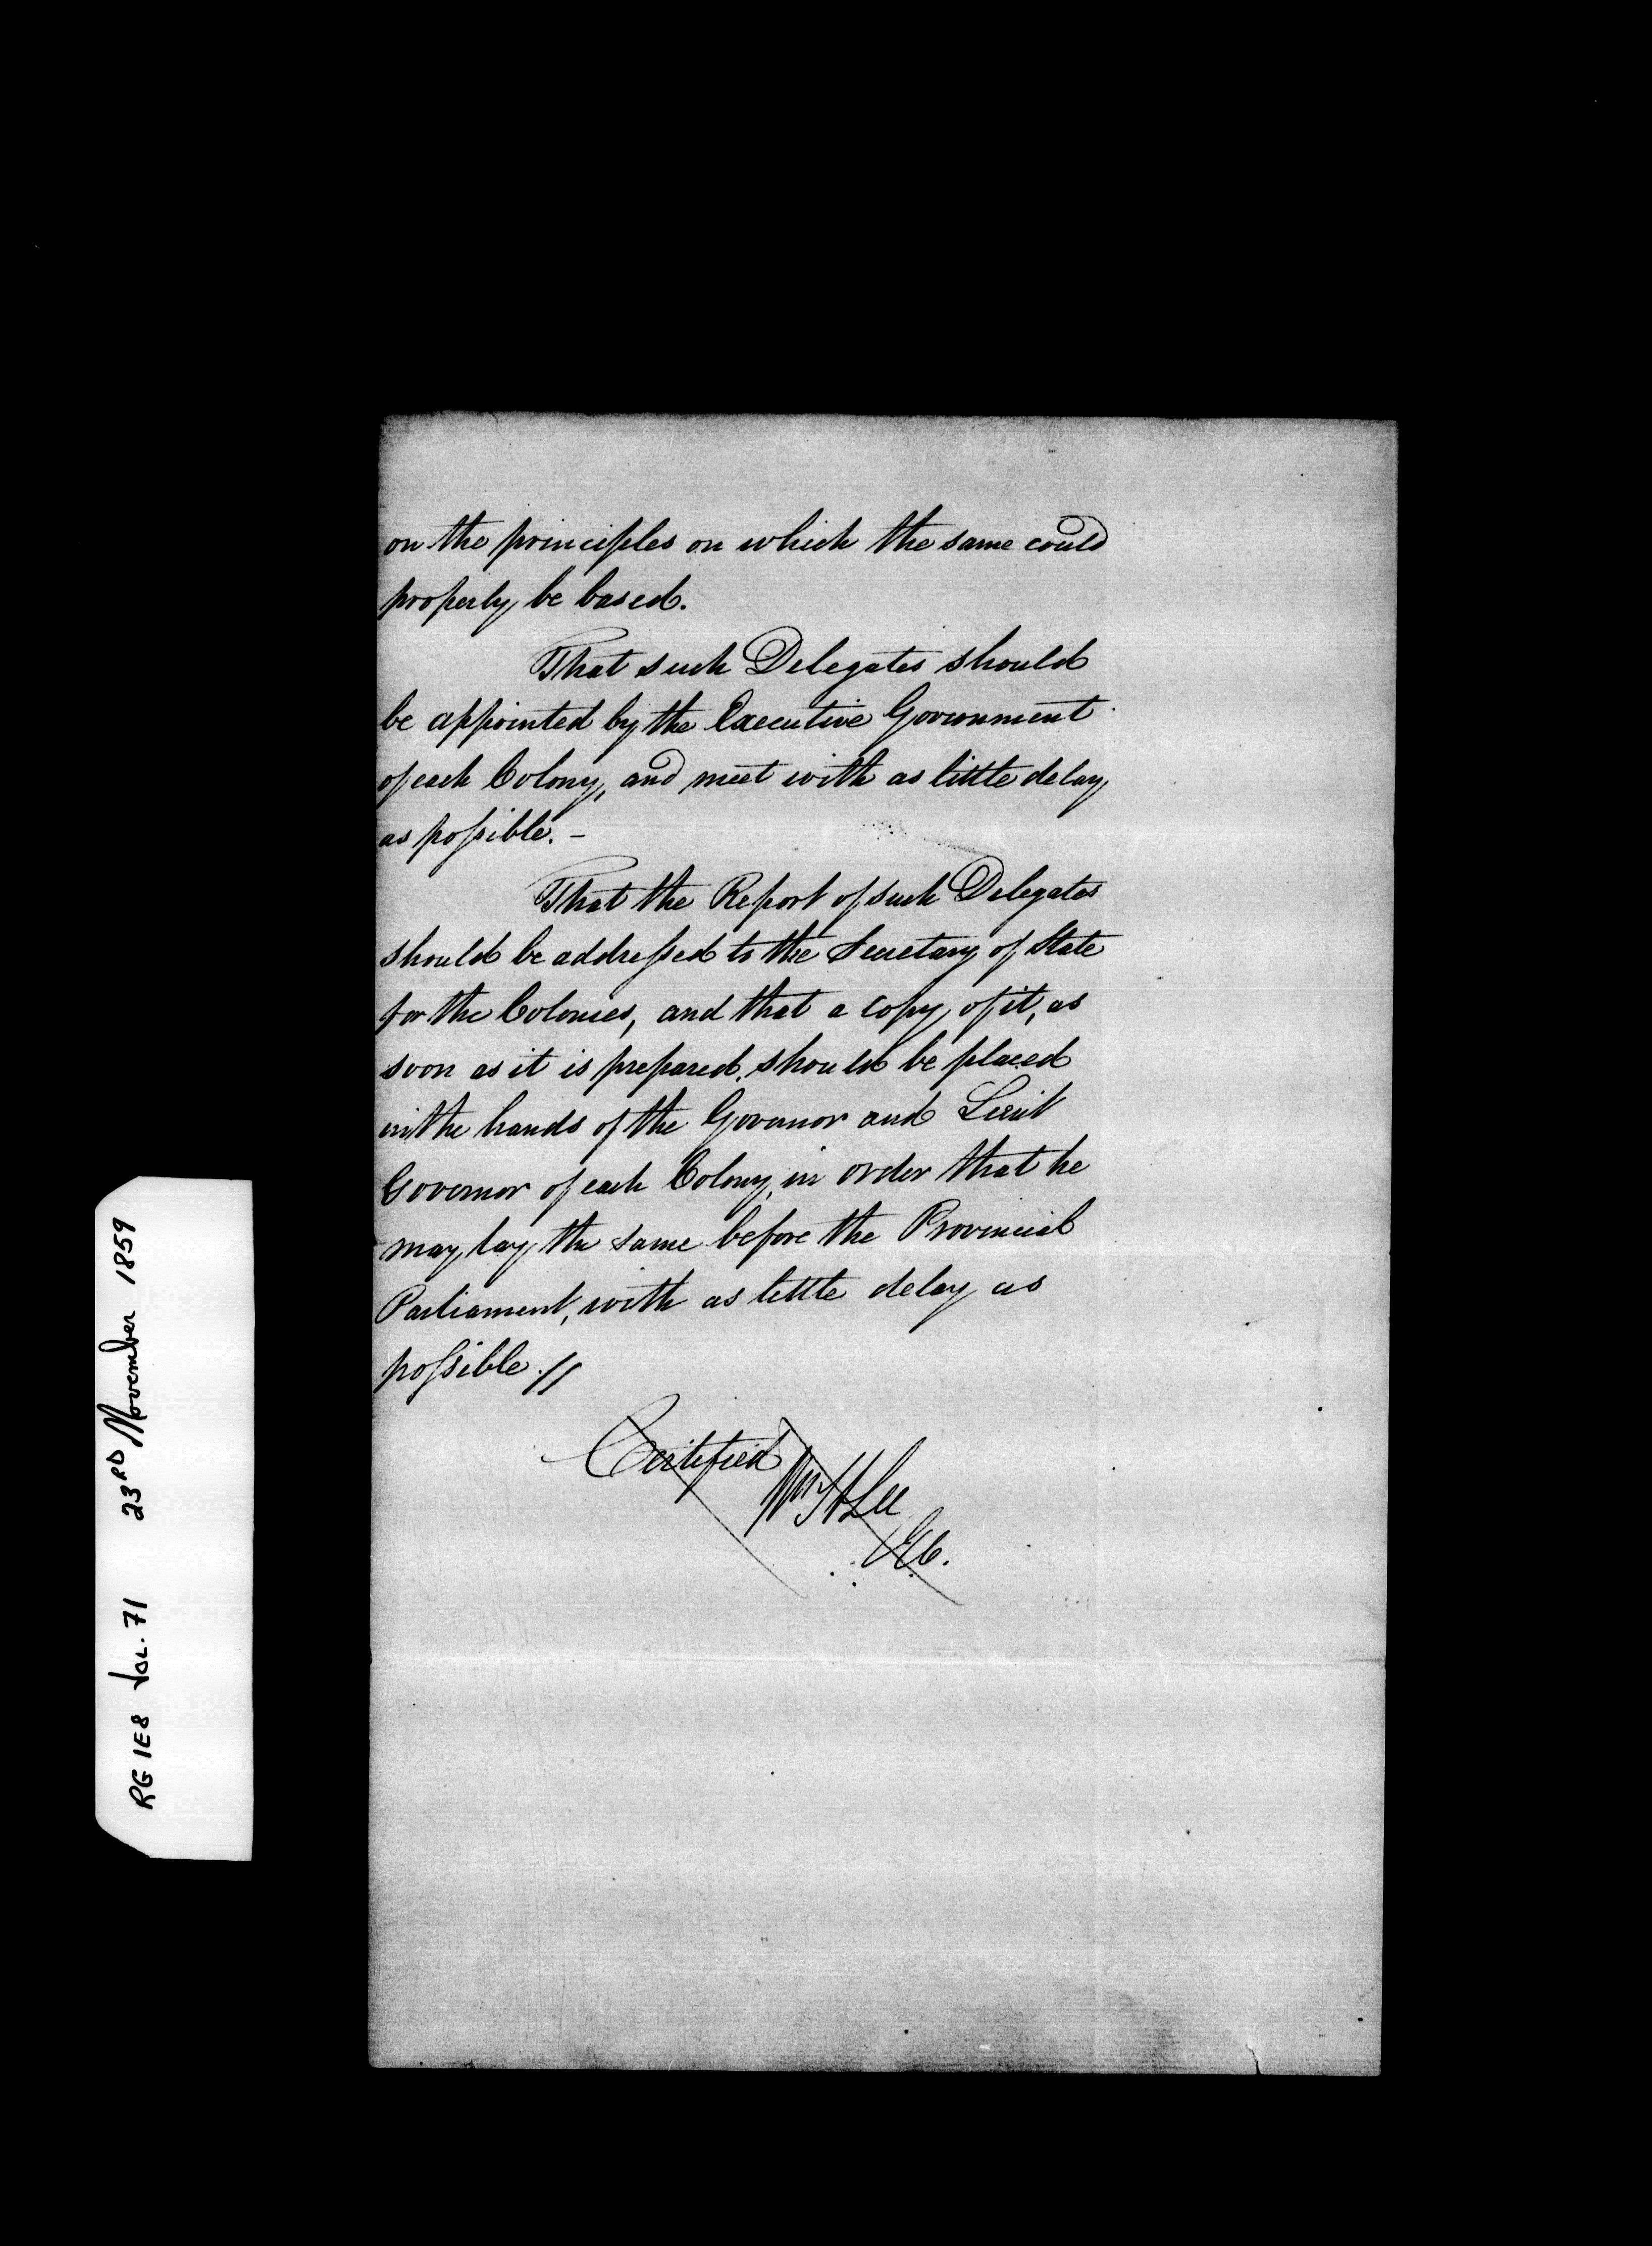 on the principles on which the same could
properly be based.
That such Delegates should
be appointed by the Executive Government
of each Colony, and meet with as little delay
as possible. -
That the Report of such Delegates
should be addressed to the Secretary of State
for the Colonies, and that a copy of it, as
soon as it is prepared, should be placed
in the hands of the Governor and Lieut
Governor of each Colony, in order that he
may lay the same before the Provincial
Parliament, with as little delay as
possible.//
Certified
Wm H Lee
CEC.
RG 1E8 VOL. 71 23RD November 1859